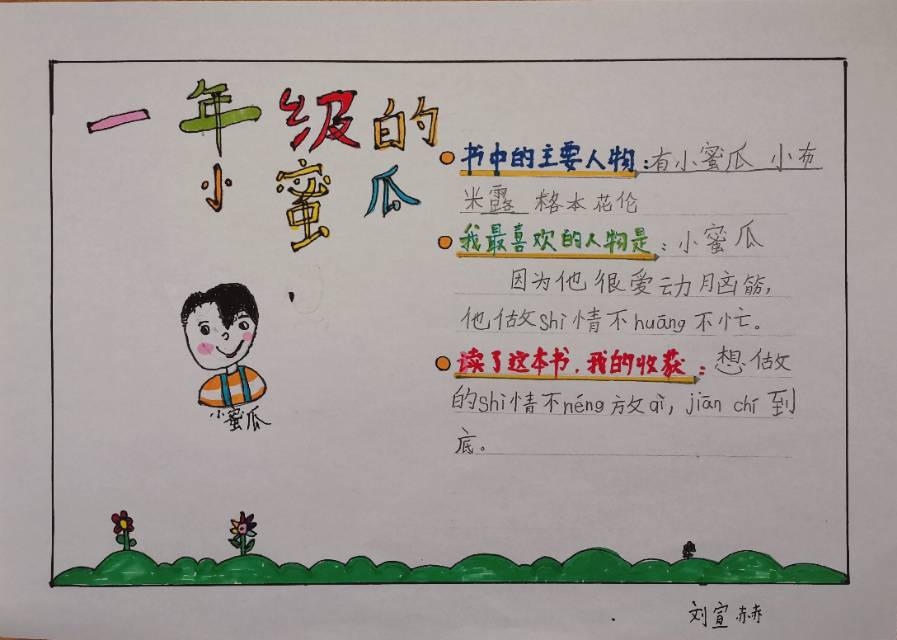 一年级的
小蜜瓜
书中的主要人物:有小蜜瓜 小布
米露 格本花伦
我最喜欢的人物是:小蜜瓜
因为他很爱动脑筋,
他做shì情不huāng不忙。
读了这本书,我的收获:想做
的shì情不néng放qì,jiān chí到
底。
小蜜瓜
刘宣赫